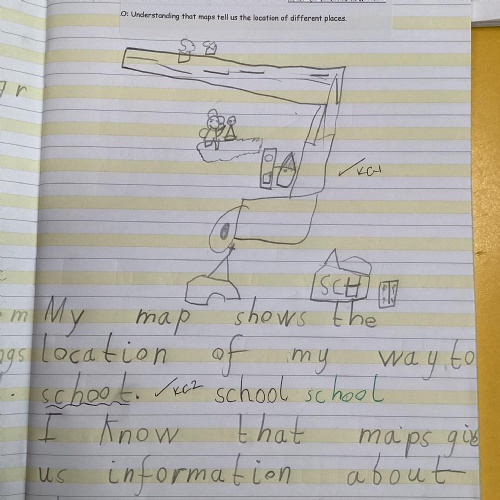 O: Understanding that maps tell us the location of different places.
✓KC1
SCH
My map shows the
location of my way to
schoot. ✓KC2 school school
I know that maps give
us information about